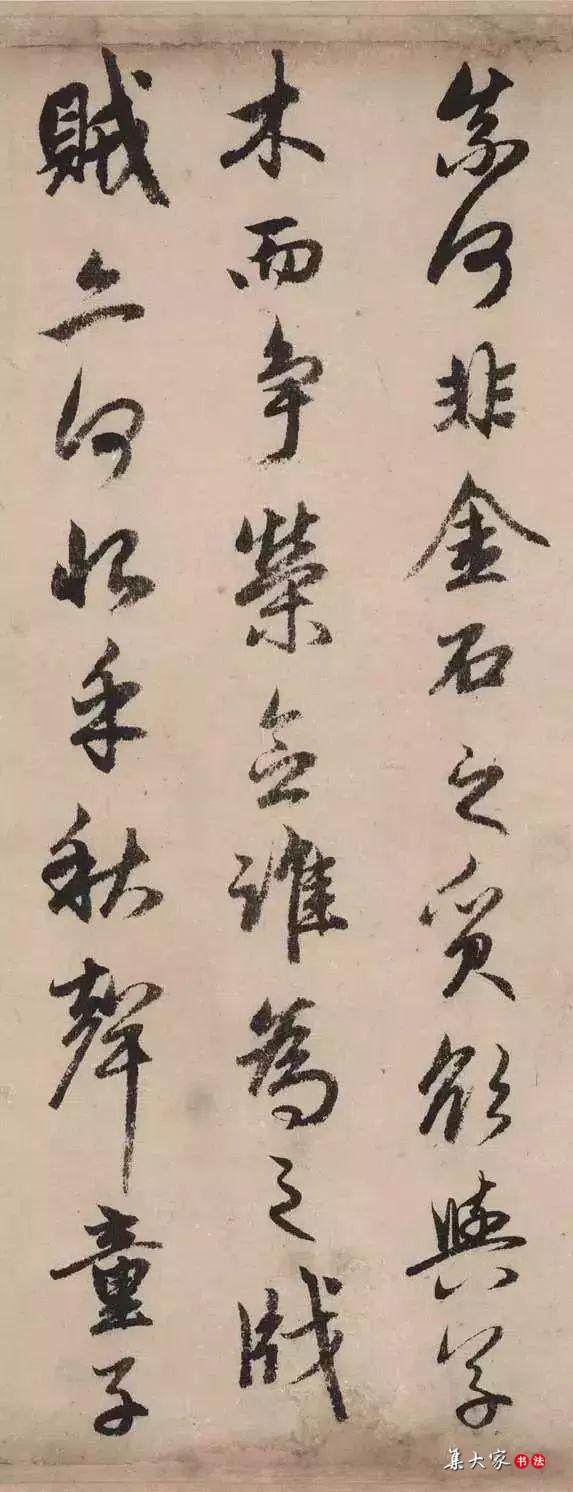 奈何非金石之質欲與草
木而爭榮念誰為之戕
賊亦何恨乎秋聲童子
集大家书法